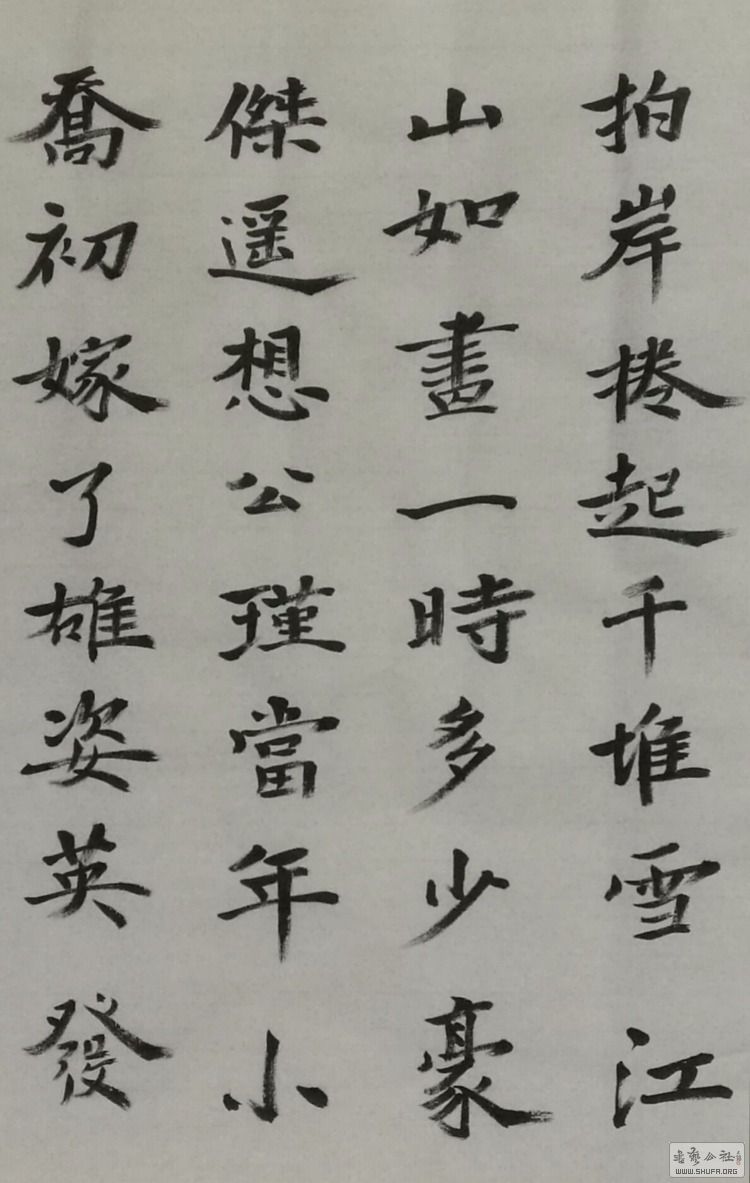 拍岸捲起千堆雪江
山如畫一時多少豪
傑遥想公瑾當年小
喬初嫁了雄姿英發
WWW.SHUFA.ORG